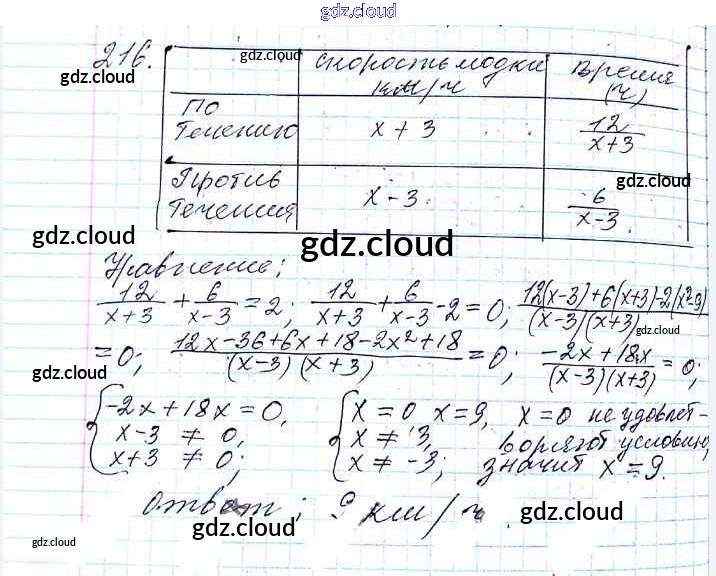 gdz.cloud
216.
gdz.cloud
gdz.cloud
Скорость лодки км/ч
Время (ч)
gdz.cloud
По течению
x + 3
12/(x+3)
Против течения
x - 3
6/(x-3)
gdz.cloud
gdz.cloud
gdz.cloud
Уравнение;
12/(x+3) + 6/(x-3) = 2; 12/(x+3) + 6/(x-3) - 2 = 0; (12(x-3)+6(x+3)-2(x²-9))/((x-3)(x+3))
gdz.cloud
= 0; (12x-36+6x+18-2x²+18)/((x-3)(x+3)) = 0; (-2x+18x)/((x-3)(x+3)) = 0;
gdz.cloud
gdz.cloud
{-2x+18x=0, {x=0 x=9, x=0 не удовлет-
x-3 ≠ 0, x ≠ 3, воряет условию,
x+3 ≠ 0; x ≠ -3; значит x=9.
gdz.cloud
gdz.cloud
Ответ; 9 км/ч
gdz.cloud
gdz.cloud
gdz.cloud